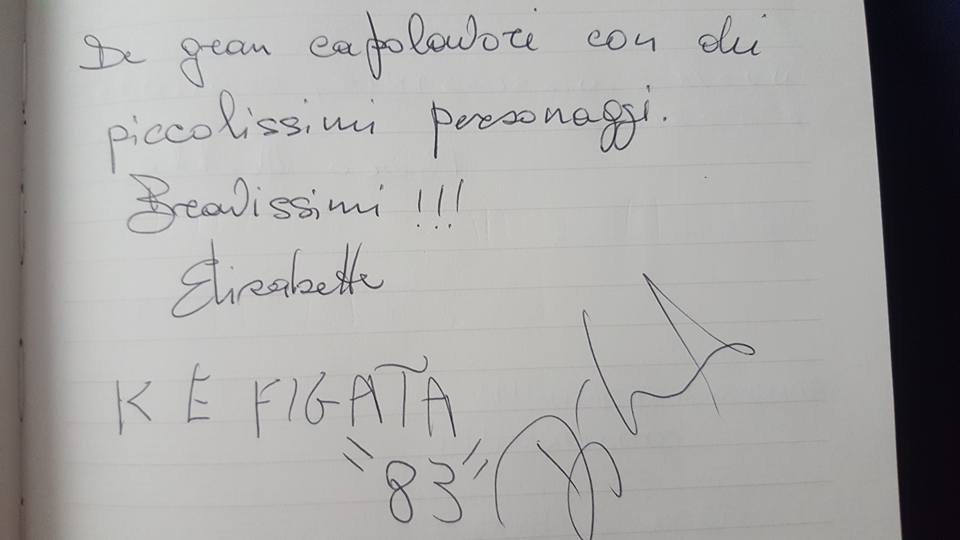 De gran capolavori con dei
piccolissimi personaggi.
Bravissimi !!!
Elisabetta
KE FIGATA
"83"